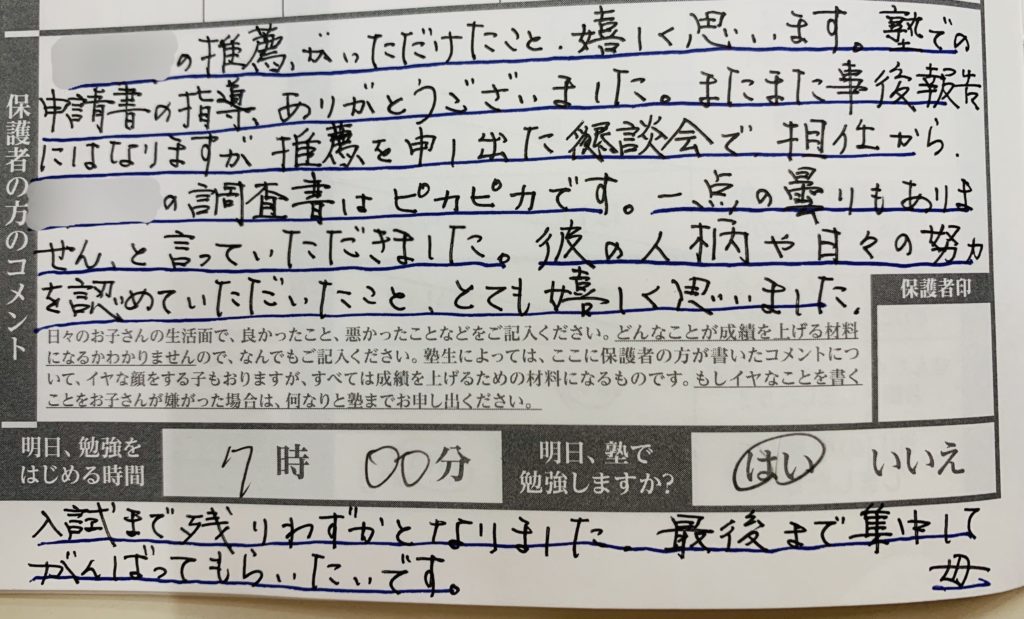 の推薦がいただけたこと、嬉しく思います。塾での
申請書の指導、ありがとうございました。またまた事後報告
にはなりますが推薦を申し出た懇談会で担任から、
の調査書はピカピカです。一点の曇りもありま
せん、と言っていただきました。彼の人柄や日々の努力
を認めていただいたこと、とても嬉しく思いました。
保護者の方のコメント
保護者印
日々のお子さんの生活面で、良かったこと、悪かったことなどをご記入ください。どんなことが成績を上げる材料
になるかわかりませんので、なんでもご記入ください。塾生によっては、ここに保護者の方が書いたコメントにつ
いて、イヤな顔をする子もおりますが、すべては成績を上げるための材料になるものです。もしイヤなことを書く
ことをお子さんが嫌がった場合は、何なりと塾までお申し出ください。
明日、勉強を
はじめる時間
7時00分
明日、塾で
勉強しますか?
はい いいえ
入試まで残りわずかとなりました。最後まで集中して
がんばってもらいたいです。 母